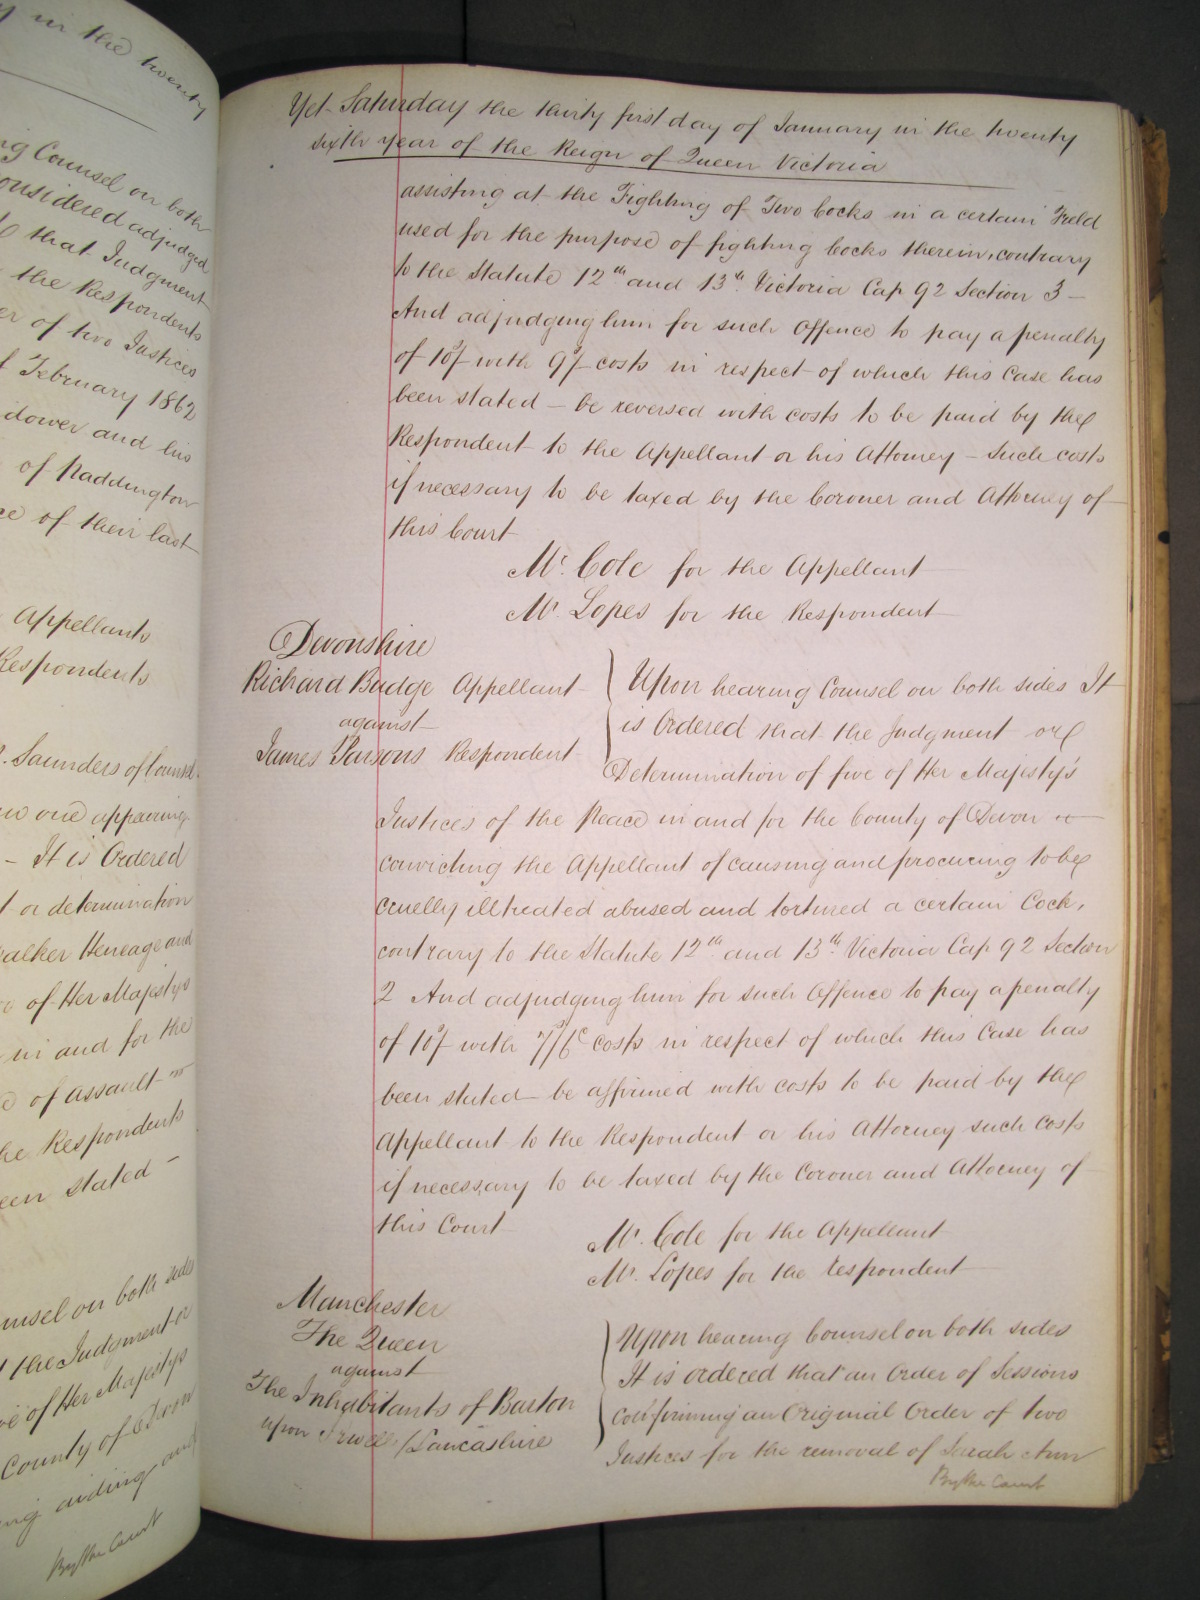 y in the twenty
ng Counsel on both
onsidered adjudged
that Judgment
the Respondents
er of two Justices
February 1862
dower and his
of Paddington
ce of their last
Appellants
Respondents
Saunders of Counsel
no one appearing
- It is Ordered
t or determination
alker Heneage and
of Her Majestys
in and for the
of assault
he Respondents
een stated -
unsel on both sides
the Judgment or
ve of Her Majestys
County of Devon
ng aiding and
By the Court
Yet Saturday the thirty first day of January in the twenty
sixth year of the Reign of Queen Victoria
assisting at the Fighting of Two Cocks in a certain Field
used for the purpose of fighting Cocks therein, contrary
to the Statute 12th and 13th Victoria Cap 92 Section 3 -
And adjudging him for such Offence to pay a penalty
of 10s/ with 9s/ costs in respect of which this Case has
been stated - be reversed with costs to be paid by the
Respondent to the Appellant or his Attorney - Such costs
if necessary to be taxed by the Coroner and Attorney of
this Court
Mr. Cole for the Appellant
Mr. Lopes for the Respondent
Devonshire
Richard Budge Appellant
against
James Parsons Respondent
Upon hearing Counsel on both sides It
is Ordered that the Judgment or
Determination of five of Her Majesty's
Justices of the Peace in and for the County of Devon
convicting the Appellant of causing and procuring to be
cruelly illtreated abused and tortured a certain Cock,
contrary to the Statute 12th and 13th Victoria Cap 92 Section
2 And adjudging him for such Offence to pay a penalty
of 10s/ with 7s/6d costs in respect of which this Case has
been stated be affirmed with costs to be paid by the
Appellant to the Respondent or his Attorney such costs
if necessary to be taxed by the Coroner and Attorney of
this Court
Mr. Cole for the Appellant
Mr. Lopes for the Respondent
Manchester
The Queen
against
The Inhabitants of Barton
upon Irwell/Lancashire
Upon hearing Counsel on both sides
It is ordered that an Order of Sessions
confirming an Original Order of two
Justices for the removal of Sarah Ann
By the Court